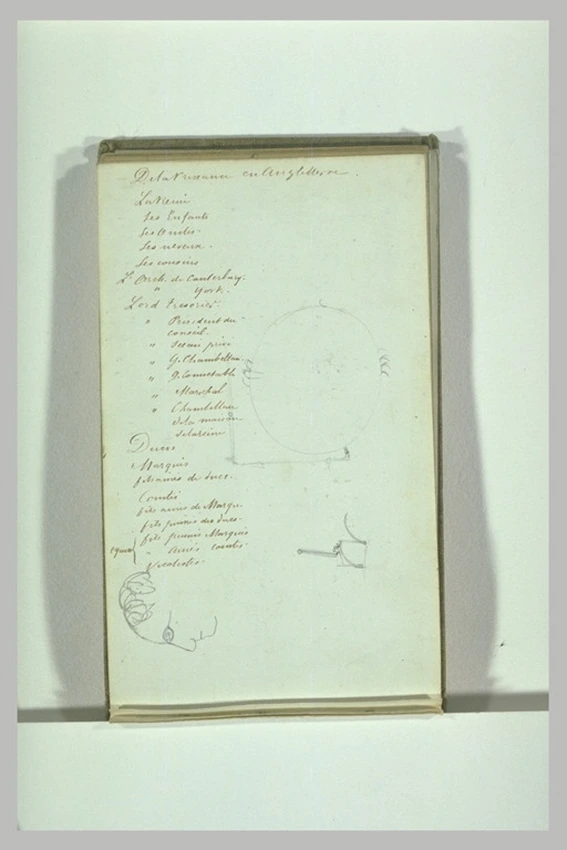 De la Préseance en Angleterre.
La Reine
Ses Enfants
Ses Oncles.
Ses neveux.
Ses cousins
L'Arch. de Canterbury.
" York.
Lord Tresorier.
" President du
conseil.
" Sceau privé
" G. Chambellan.
" G. Connetable
" Marechal
" Chambellan
de la maison
de la reine
Ducs
Marquis
fils ainés de ducs.
Comtes
fils ainés de Marqu.
fils puinés des ducs.
fils puinés Marquis
" Ainés comtes.
Vicomtes.